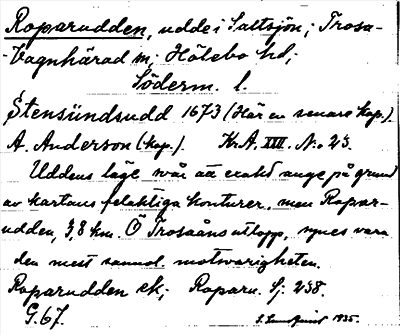 Roparudden, udde i Saltsjön; Trosa-
Vagnhärad sn; Hölebo hd;
Söderm. l.
Stensundsudd 1673 (Här en senare kop.)
A. Anderson (kop.). K.A. XIII. No 23.
Uddens läge svår att exakt ange på grund
av kartans felaktiga konturer, men Ropar-
udden, 3,8 km. Ö Trosaåns utlopp, synes vara
den mest sannol. motsvarigheten.
Roparudden ek; Roparu. Sj. 238.
G. 67. 1935.